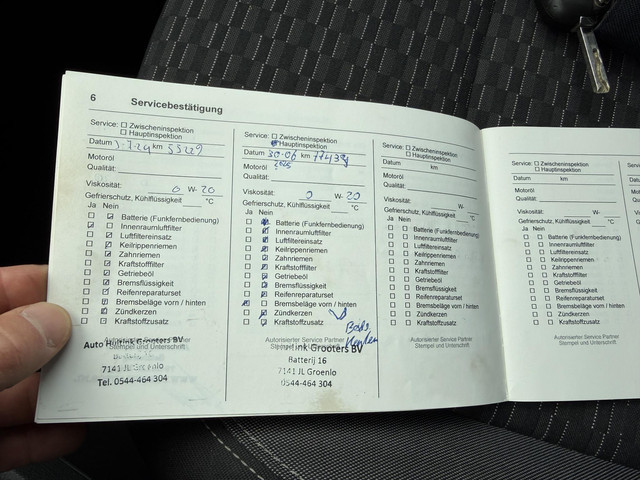 6 Servicebestätigung
Service: Zwischeninspektion
Hauptinspektion
Datum 1-7-24 km 55229
Motoröl
Qualität:
Viskosität: 0 W- 20
Gefrierschutz, Kühlflüssigkeit °C
Ja Nein
Batterie (Funkfernbedienung)
Innenraumluftfilter
Luftfiltereinsatz
Keilrippenriemen
Zahnriemen
Kraftstofffilter
Getriebeöl
Bremsflüssigkeit
Reifenreparaturset
Bremsbeläge vorn / hinten
Zündkerzen
Kraftstoffzusatz
Autorisierter Service Partner
Stempel und Unterschrift
Grooters BV
7141 JL Groenlo
Tel. 0544-464 304
Service: Zwischeninspektion
Hauptinspektion
Datum 30-06 km
2025
Motoröl
Qualität:
Viskosität: 0 W- 20
Gefrierschutz, Kühlflüssigkeit °C
Ja Nein
Batterie (Funkfernbedienung)
Innenraumluftfilter
Luftfiltereinsatz
Keilrippenriemen
Zahnriemen
Kraftstofffilter
Getriebeöl
Bremsflüssigkeit
Reifenreparaturset
Bremsbeläge vorn / hinten
Zündkerzen
Kraftstoffzusatz
Autorisierter Service Partner
Stempel und Unterschrift
Grooters BV
Batterij 16
7141 JL Groenlo
0544-464 304
Service: Zwischeninspektion
Hauptinspektion
Datum km
Motoröl
Qualität:
Viskosität: W-
Gefrierschutz, Kühlflüssigkeit °C
Ja Nein
Batterie (Funkfernbedienung)
Innenraumluftfilter
Luftfiltereinsatz
Keilrippenriemen
Zahnriemen
Kraftstofffilter
Getriebeöl
Bremsflüssigkeit
Reifenreparaturset
Bremsbeläge vorn / hinten
Zündkerzen
Kraftstoffzusatz
Autorisierter Service Partner
Stempel und Unterschrift
Service: Zwischeninspektion
Hauptinspektion
Datum km
Motoröl
Qualität:
Viskosität: W-
Gefrierschutz, Kühlflüssigkeit °C
Ja Nein
Batterie (Funkfernbedienung)
Innenraumluftfilter
Luftfiltereinsatz
Keilrippenriemen
Zahnriemen
Kraftstofffilter
Getriebeöl
Bremsflüssigkeit
Reifenreparaturset
Bremsbeläge vorn / hinten
Zündkerzen
Kraftstoffzusatz
Autorisierter Service Partner
Stempel und Unterschrift